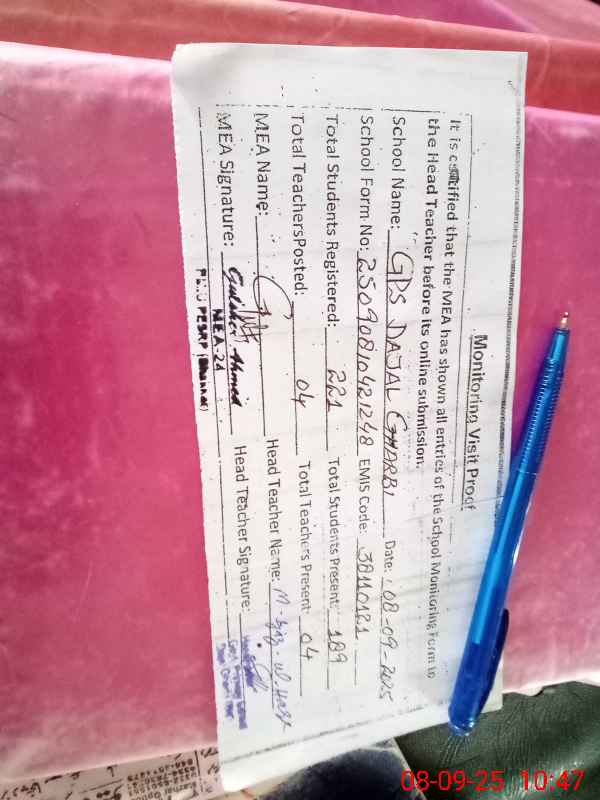 Monitoring Visit Proof
It is certified that the MEA has shown all entries of the School Monitoring Form to
the Head Teacher before its online submission.
School Name: GPS DAJAL GHARBI Date: 08-09-2025
School Form No: 25090810421248 EMIS Code: 38110181
Total Students Registered: 221 Total Students Present: 189
Total TeachersPosted: 04 Total Teachers Present: 04
MEA Name: Head Teacher Name: M-Ijaz-ul-Haq
MEA Signature: Head Teacher Signature:
Gulsher Ahmed
MEA-24
PESRP (Bhakkar)
08-09-25 10:47